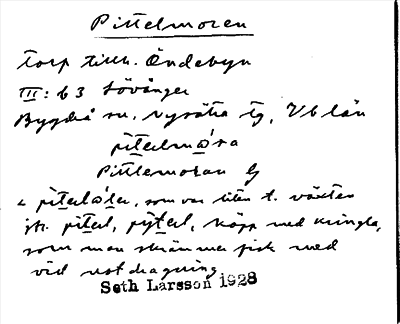 Pittelmoren
torp tillh. Åndebyn
III: b 3 Lövånger
Bygdeå sn, Nysätra tg, Vb län
pitelmora
Pittlemoran
, som var liten t. växten
jfr. pitel, pytel, käpp med kringla,
som man skrämmer fisk med
vid notdragning
Seth Larsson 1928